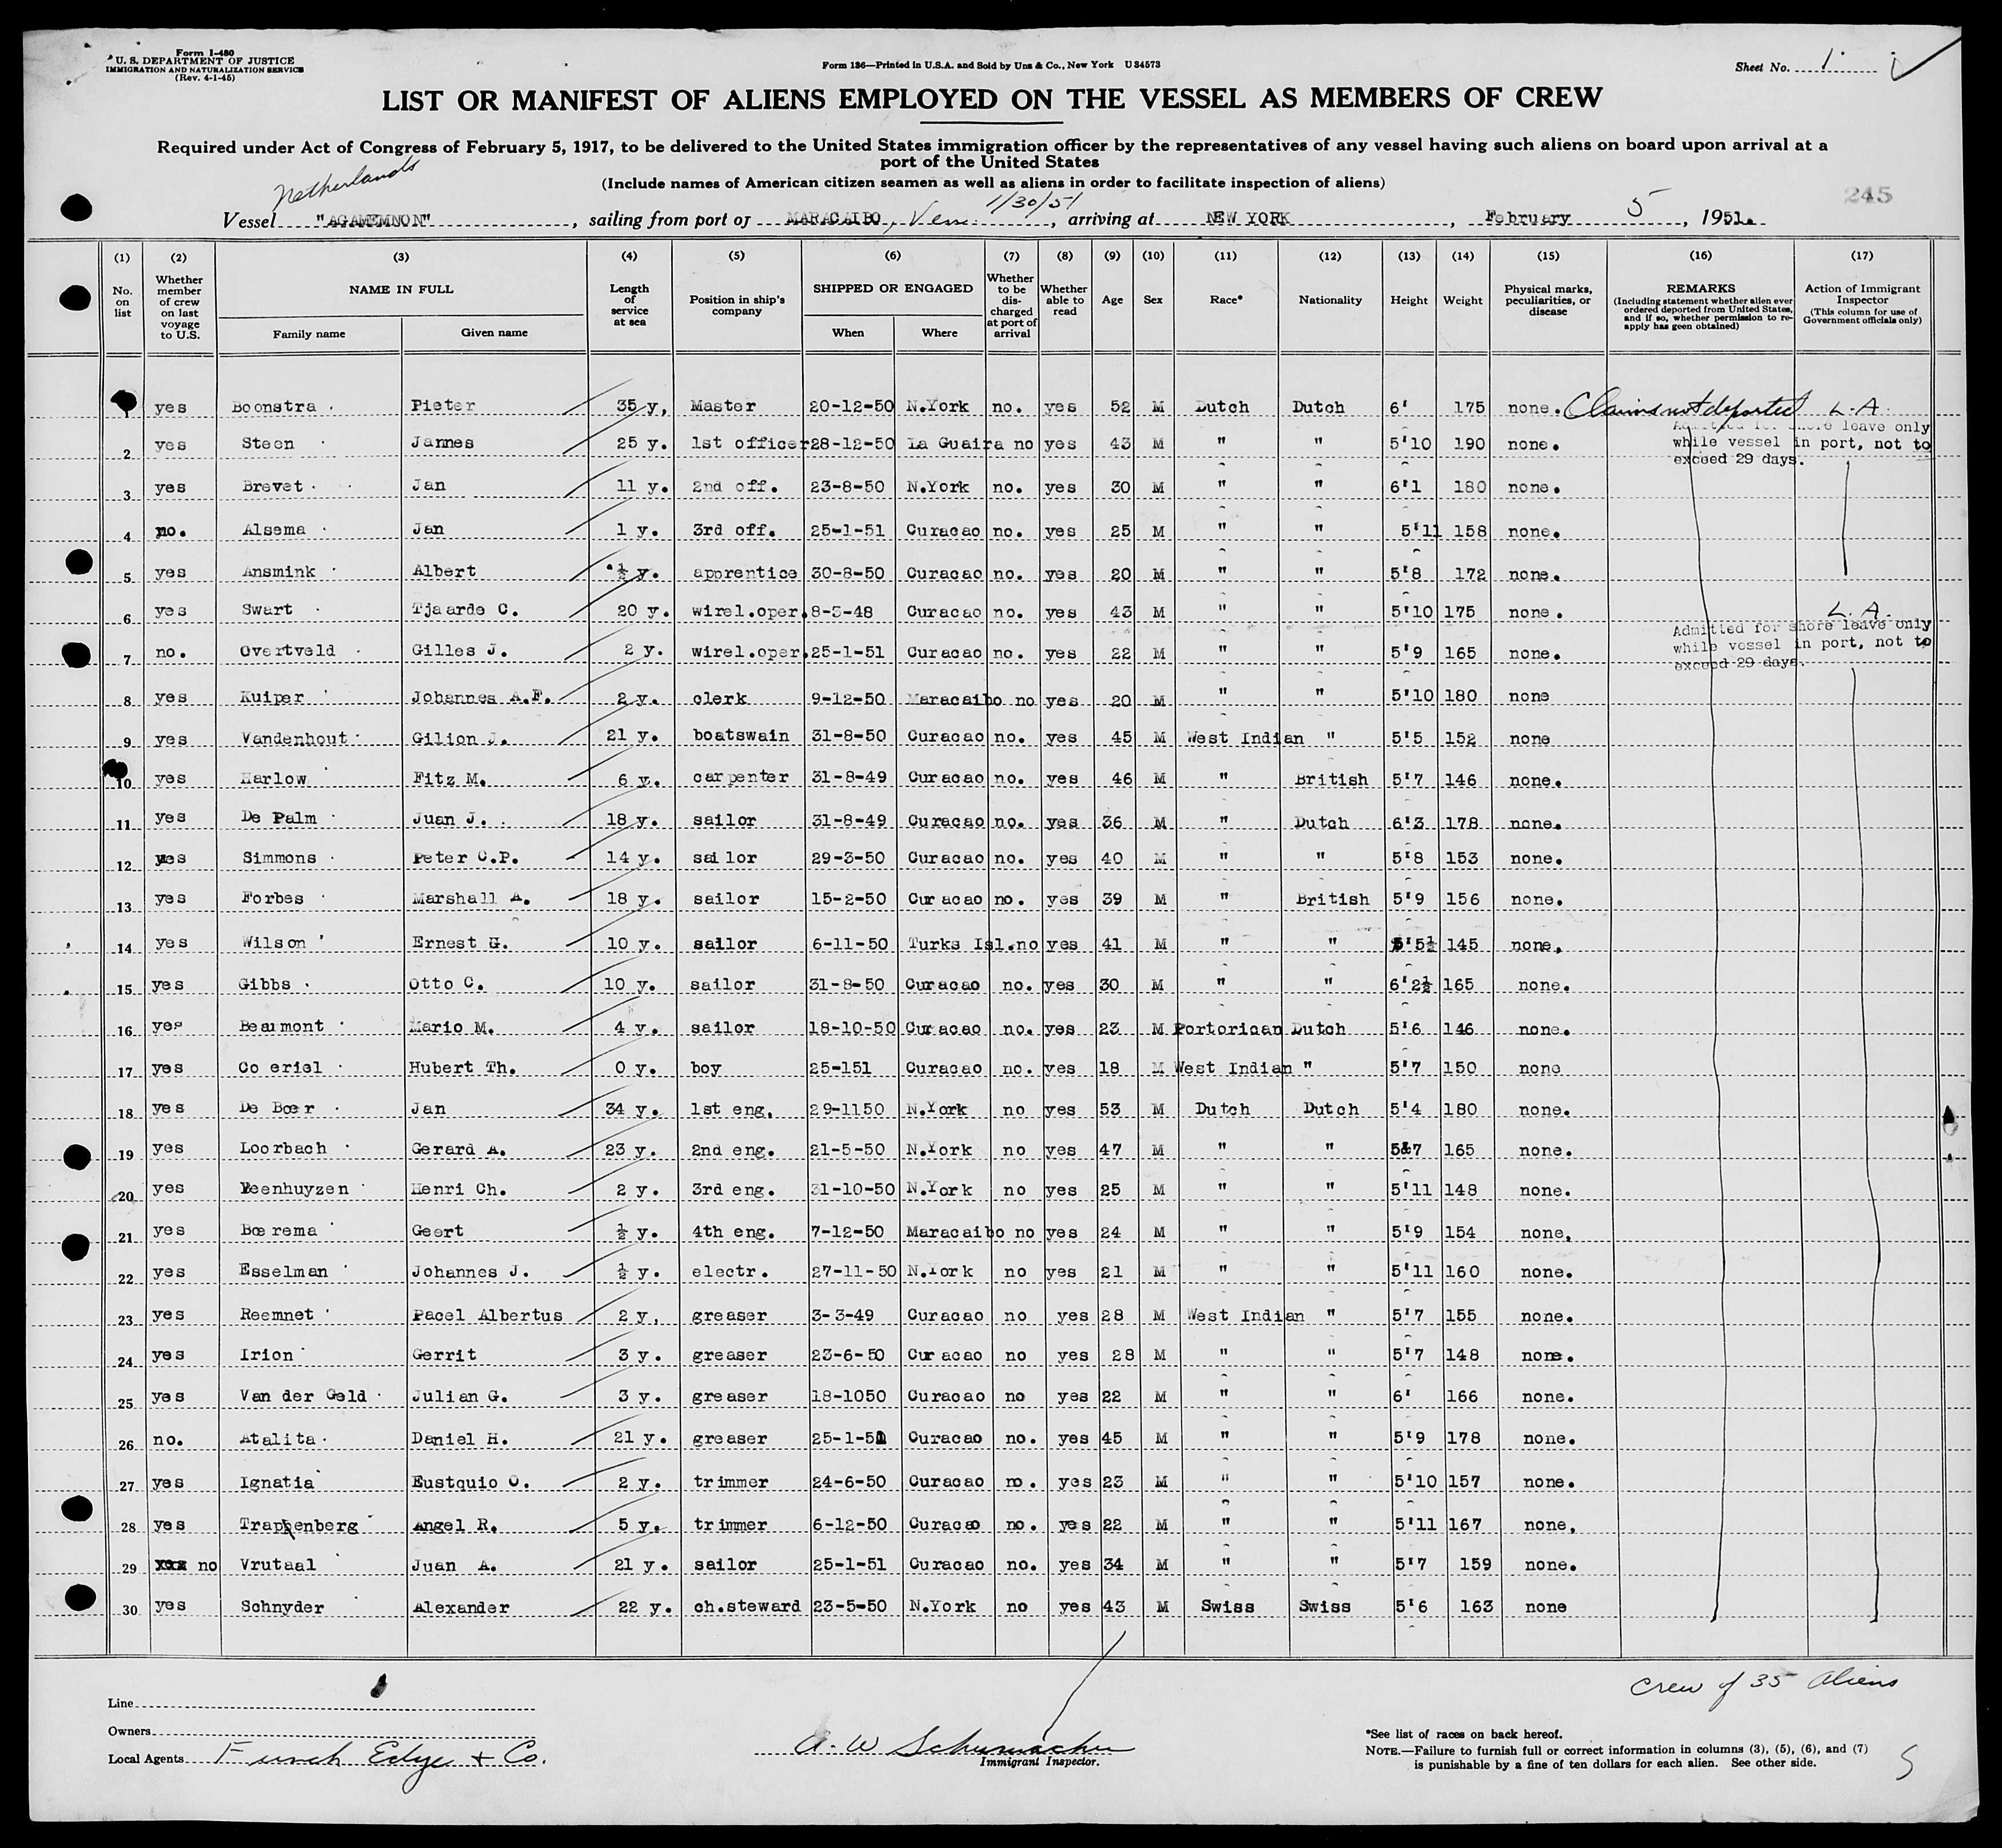 Form I-480
U. S. DEPARTMENT OF JUSTICE
IMMIGRATION AND NATURALIZATION SERVICE
(Rev. 4-1-45)
Form 136—Printed in U.S.A. and Sold by Unz & Co., New York U 34573
Sheet No. 1
LIST OR MANIFEST OF ALIENS EMPLOYED ON THE VESSEL AS MEMBERS OF CREW
Required under Act of Congress of February 5, 1917, to be delivered to the United States immigration officer by the representatives of any vessel having such aliens on board upon arrival at a
port of the United States
(Include names of American citizen seamen as well as aliens in order to facilitate inspection of aliens)
Netherlands
1/30/51
245
Vessel "AGAMEMNON", sailing from port of MARACAIBO, Ven., arriving at NEW YORK, February 5, 1951.
(1) (2) (3) (4) (5) (6) (7) (8) (9) (10) (11) (12) (13) (14) (15) (16) (17)
No. on list
Whether member of crew on last voyage to U.S.
NAME IN FULL
Family name
Given name
Length of service at sea
Position in ship's company
SHIPPED OR ENGAGED
When
Where
Whether to be discharged at port of arrival
Whether able to read
Age
Sex
Race*
Nationality
Height
Weight
Physical marks, peculiarities, or disease
REMARKS
(Including statement whether alien ever ordered deported from United States, and if so, whether permission to re-apply has geen obtained)
Action of Immigrant Inspector
(This column for use of Government officials only)
yes Boonstra Pieter 35 y, Master 20-12-50 N.York no. yes 52 M Dutch Dutch 6' 175 none. Claims not deported L.A.
2 yes Steen Jannes 25 y. 1st officer 28-12-50 La Guaira no yes 43 M " " 5'10 190 none.
Admitted for shore leave only
while vessel in port, not to
exceed 29 days.
3 yes Brevet Jan 11 y. 2nd off. 23-8-50 N.York no. yes 30 M " " 6'1 180 none.
4 no. Alsema Jan 1 y. 3rd off. 25-1-51 Curacao no. yes 25 M " " 5'11 158 none.
5 yes Ansmink Albert ½ y. apprentice 30-8-50 Curacao no. yes 20 M " " 5'8 172 none.
6 yes Swart Tjaarde C. 20 y. wirel.oper. 8-3-48 Curacao no. yes 43 M " " 5'10 175 none. L.A.
Admitted for shore leave only
while vessel in port, not to
exceed 29 days.
7 no. Overtveld Gilles J. 2 y. wirel.oper. 25-1-51 Curacao no. yes 22 M " " 5'9 165 none.
8 yes Kuiper Johannes A.F. 2 y. clerk 9-12-50 Maracaibo no yes 20 M " " 5'10 180 none
9 yes Vandenhout Gilion J. 21 y. boatswain 31-8-50 Curacao no. yes 45 M West Indian " 5'5 152 none
10 yes Harlow Fitz M. 6 y. carpenter 31-8-49 Curacao no. yes 46 M " British 5'7 146 none.
11 yes De Palm Juan J. 18 y. sailor 31-8-49 Curacao no. yes 36 M " Dutch 6'3 178 none.
12 yes Simmons Peter C.P. 14 y. sailor 29-3-50 Curacao no. yes 40 M " " 5'8 153 none.
13 yes Forbes Marshall A. 18 y. sailor 15-2-50 Curacao no. yes 39 M " British 5'9 156 none.
14 yes Wilson Ernest G. 10 y. sailor 6-11-50 Turks Isl. no yes 41 M " " 5'5½ 145 none,
15 yes Gibbs Otto C. 10 y. sailor 31-8-50 Curacao no. yes 30 M " " 6'2½ 165 none.
16 yes Beaumont Mario M. 4 y. sailor 18-10-50 Curacao no. yes 23 M Portorican Dutch 5'6 146 none.
17 yes Co eriel Hubert Th. 0 y. boy 25-151 Curacao no. yes 18 M West Indian " 5'7 150 none
18 yes De Boer Jan 34 y. 1st eng. 29-1150 N.York no yes 53 M Dutch Dutch 5'4 180 none.
19 yes Loorbach Gerard A. 23 y. 2nd eng. 21-5-50 N.York no yes 47 M " " 5'7 165 none.
20 yes Veenhuyzen Henri Ch. 2 y. 3rd eng. 31-10-50 N.York no yes 25 M " " 5'11 148 none.
21 yes Boerema Geert ½ y. 4th eng. 7-12-50 Maracaibo no yes 24 M " " 5'9 154 none.
22 yes Esselman Johannes J. ½ y. electr. 27-11-50 N.York no yes 21 M " " 5'11 160 none.
23 yes Reemnet Pacel Albertus 2 y, greaser 3-3-49 Curacao no yes 28 M West Indian " 5'7 155 none.
24 yes Irion Gerrit 3 y. greaser 23-6-50 Curacao no yes 28 M " " 5'7 148 none.
25 yes Van der Geld Julian G. 3 y. greaser 18-1050 Curacao no yes 22 M " " 6' 166 none.
26 no. Atalita Daniel H. 21 y. greaser 25-1-51 Curacao no. yes 45 M " " 5'9 178 none.
27 yes Ignatia Eustquio O. 2 y. trimmer 24-6-50 Curacao no. yes 23 M " " 5'10 157 none.
28 yes Trappenberg Angel R. 5 y. trimmer 6-12-50 Curacao no. yes 22 M " " 5'11 167 none,
29 no Vrutaal Juan A. 21 y. sailor 25-1-51 Curacao no. yes 34 M " " 5'7 159 none.
30 yes Schnyder Alexander 22 y. ch.steward 23-5-50 N.York no yes 43 M Swiss Swiss 5'6 163 none
crew of 35 aliens
Line
Owners
Local Agents Funch Edye & Co.
A. W Schumacher
Immigrant Inspector.
*See list of races on back hereof.
NOTE.—Failure to furnish full or correct information in columns (3), (5), (6), and (7)
is punishable by a fine of ten dollars for each alien. See other side.